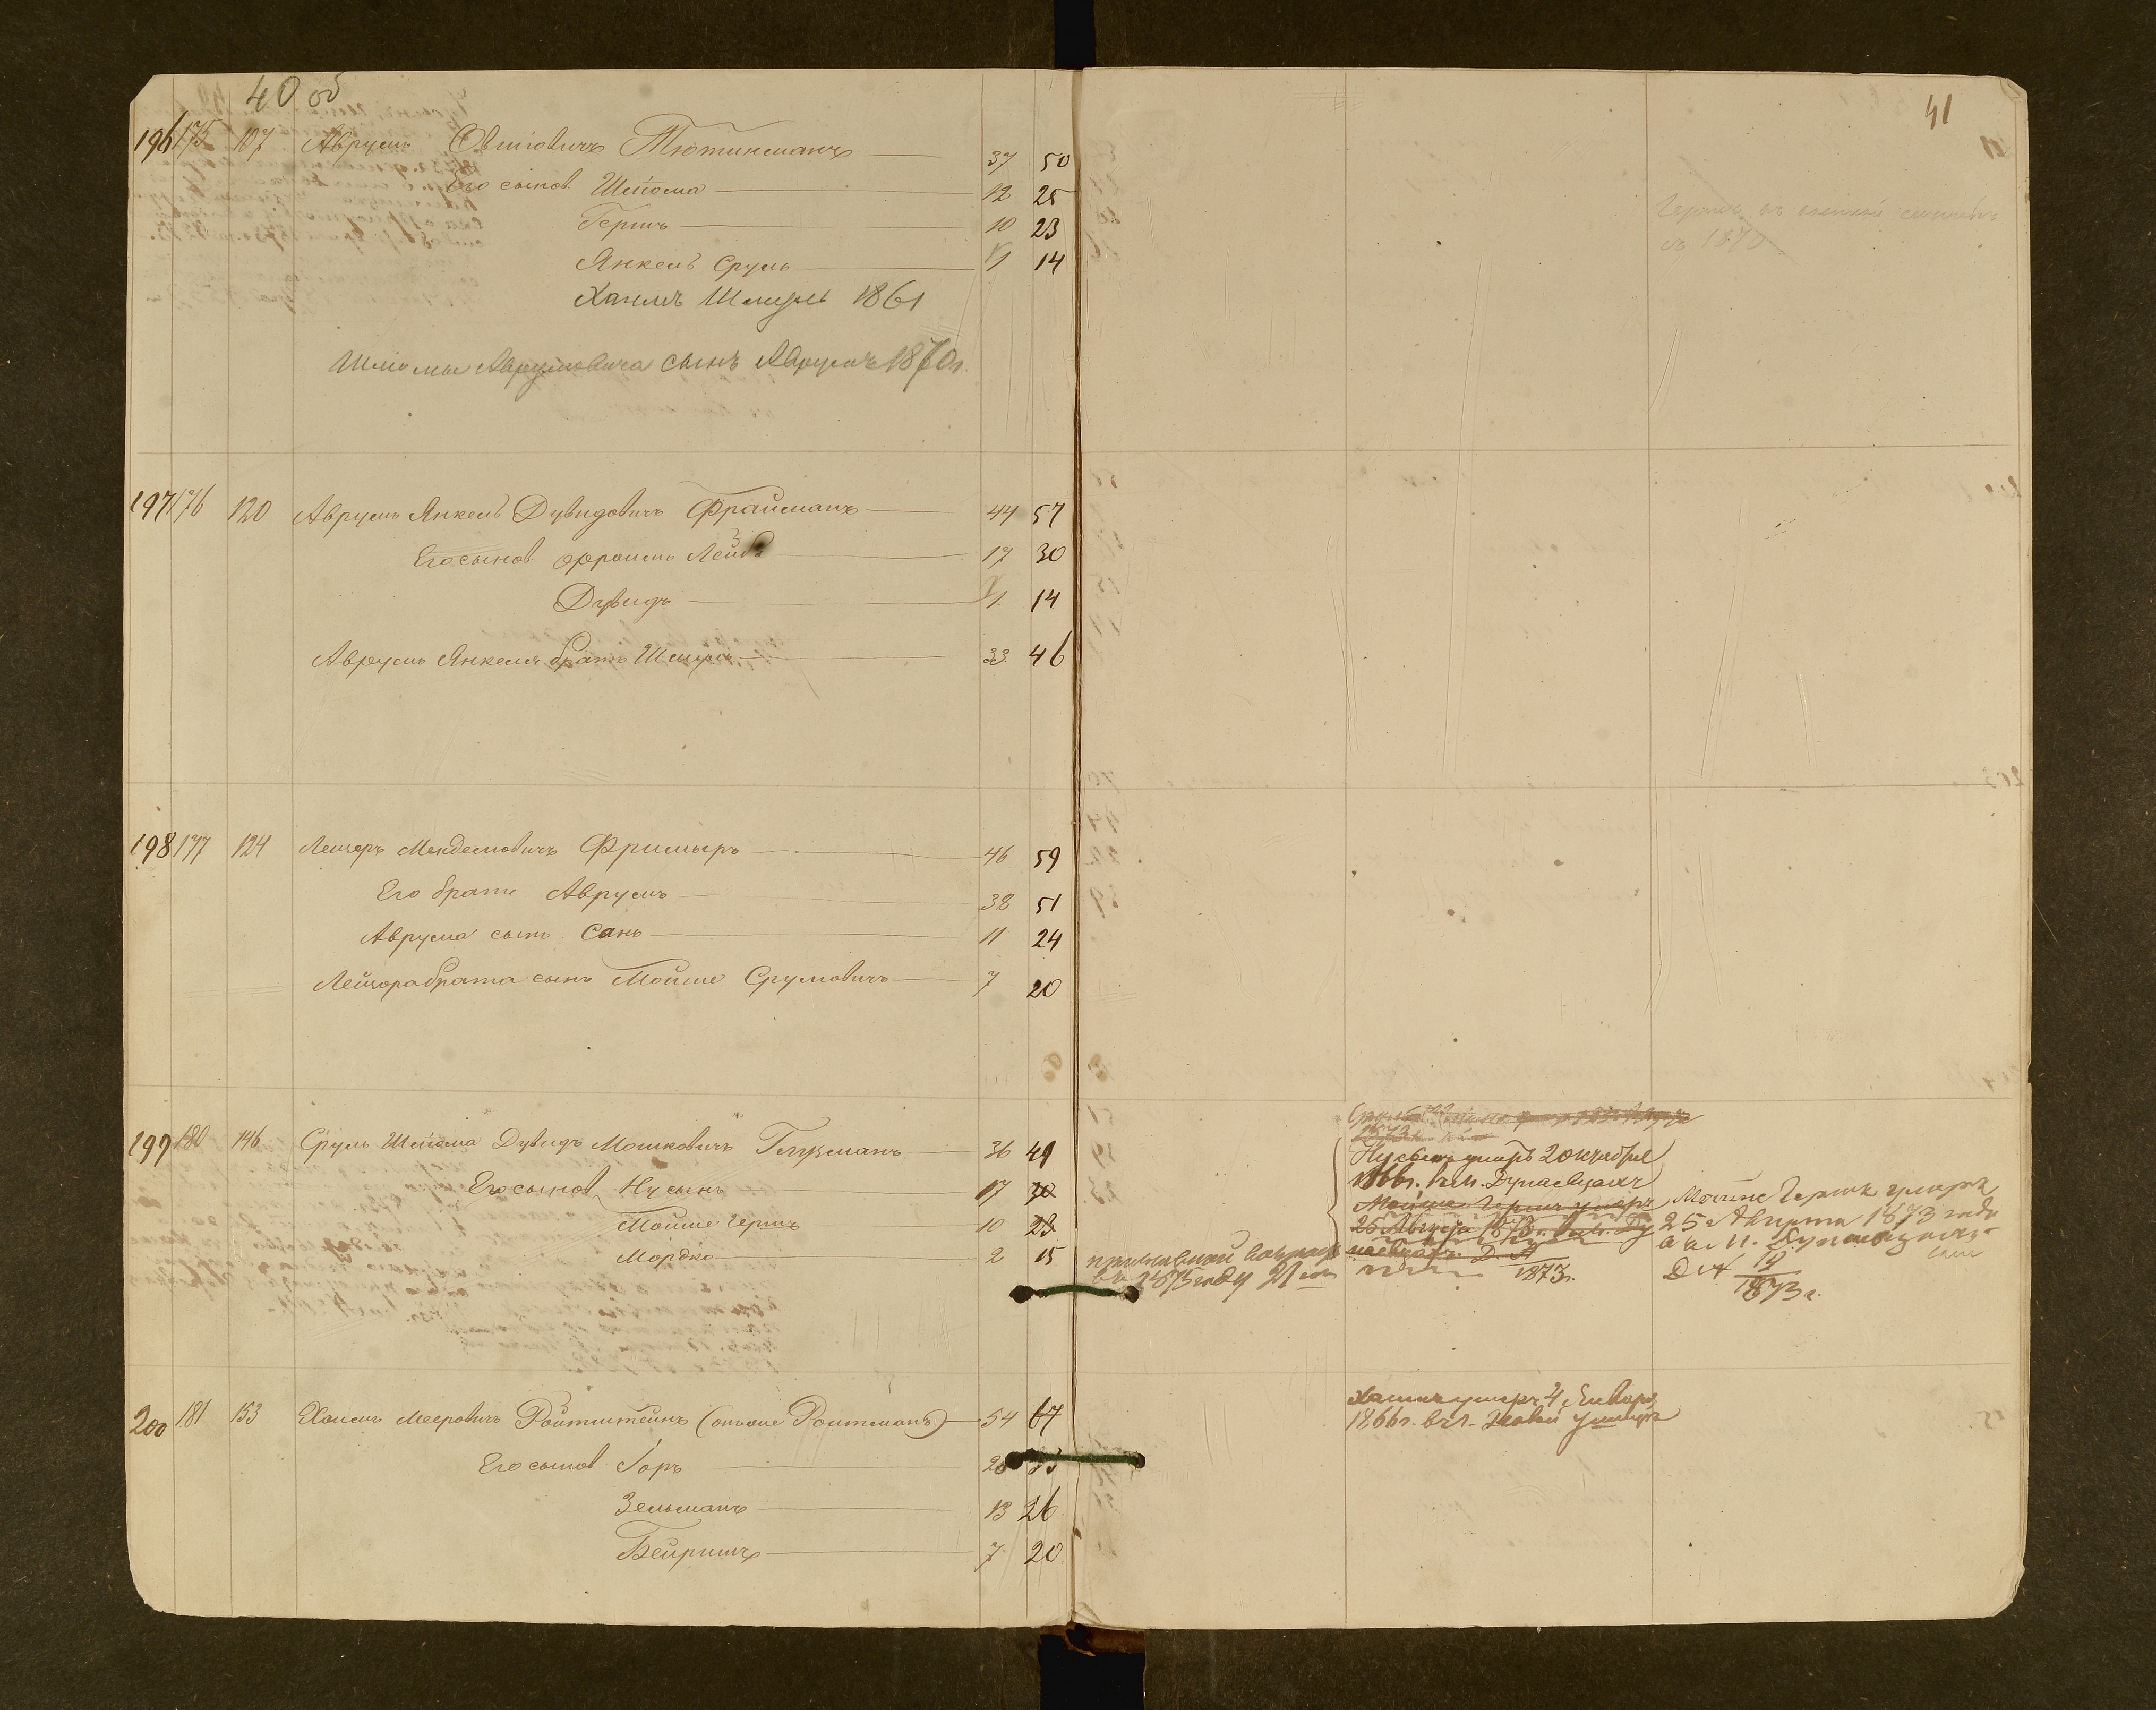 40 об
196 175 107 Аврумъ Овшіовичъ Тютинманъ 37 50
Его сынов. Шліома 12 25
Гершъ 10 23
Янкель Сруль 1 14
Хаимъ Шмуль 1861
Шліомы Аврумовича сынъ Аврумъ 1870г.
197 176 120 Аврумъ Янкель Дувидовичъ Фрайманъ 44 57
Его сынов 17 30
Дувидъ 1 14
Аврумъ Янкеля братъ Шмуль 33 46
198 177 124 Лейзоръ Менделовичъ Фримыръ 46 59
Его братъ Аврумъ 38 51
Аврума сынъ Сань 11 24
Лейзора брата сынъ Мойше Срулювичъ 7 20
199 180 146 Сруль Шліома Дувидъ Мошковичъ 36 49
Его сынов Нусынъ 17 30
Мойше Гершъ 10 23
Мордко 2 15
200 181 153 Хаимъ Мееровичъ Ройтштейнъ (онъ же Ройтманъ) 54 67
Его сынов 20
Зельманъ 13 26
Бейришъ 7 20
41
Гершъ въ военной службѣ
съ 1870
въ 1875 году 21
Нусынъ умеръ 20 октября
1866г. въ м. Дунаевцахъ
Мойше Гершъ умеръ
25 Августа 1873 г. въ м. Ду
наевцахъ. Д. №
1873г.
Мойше Гершъ умеръ
25 Августа 1873 года
въ м. Дунаевцахъ
Д №
1873 г.
Хаимъ умеръ 4 Января
1866г. въ г. Новой Ушицѣ